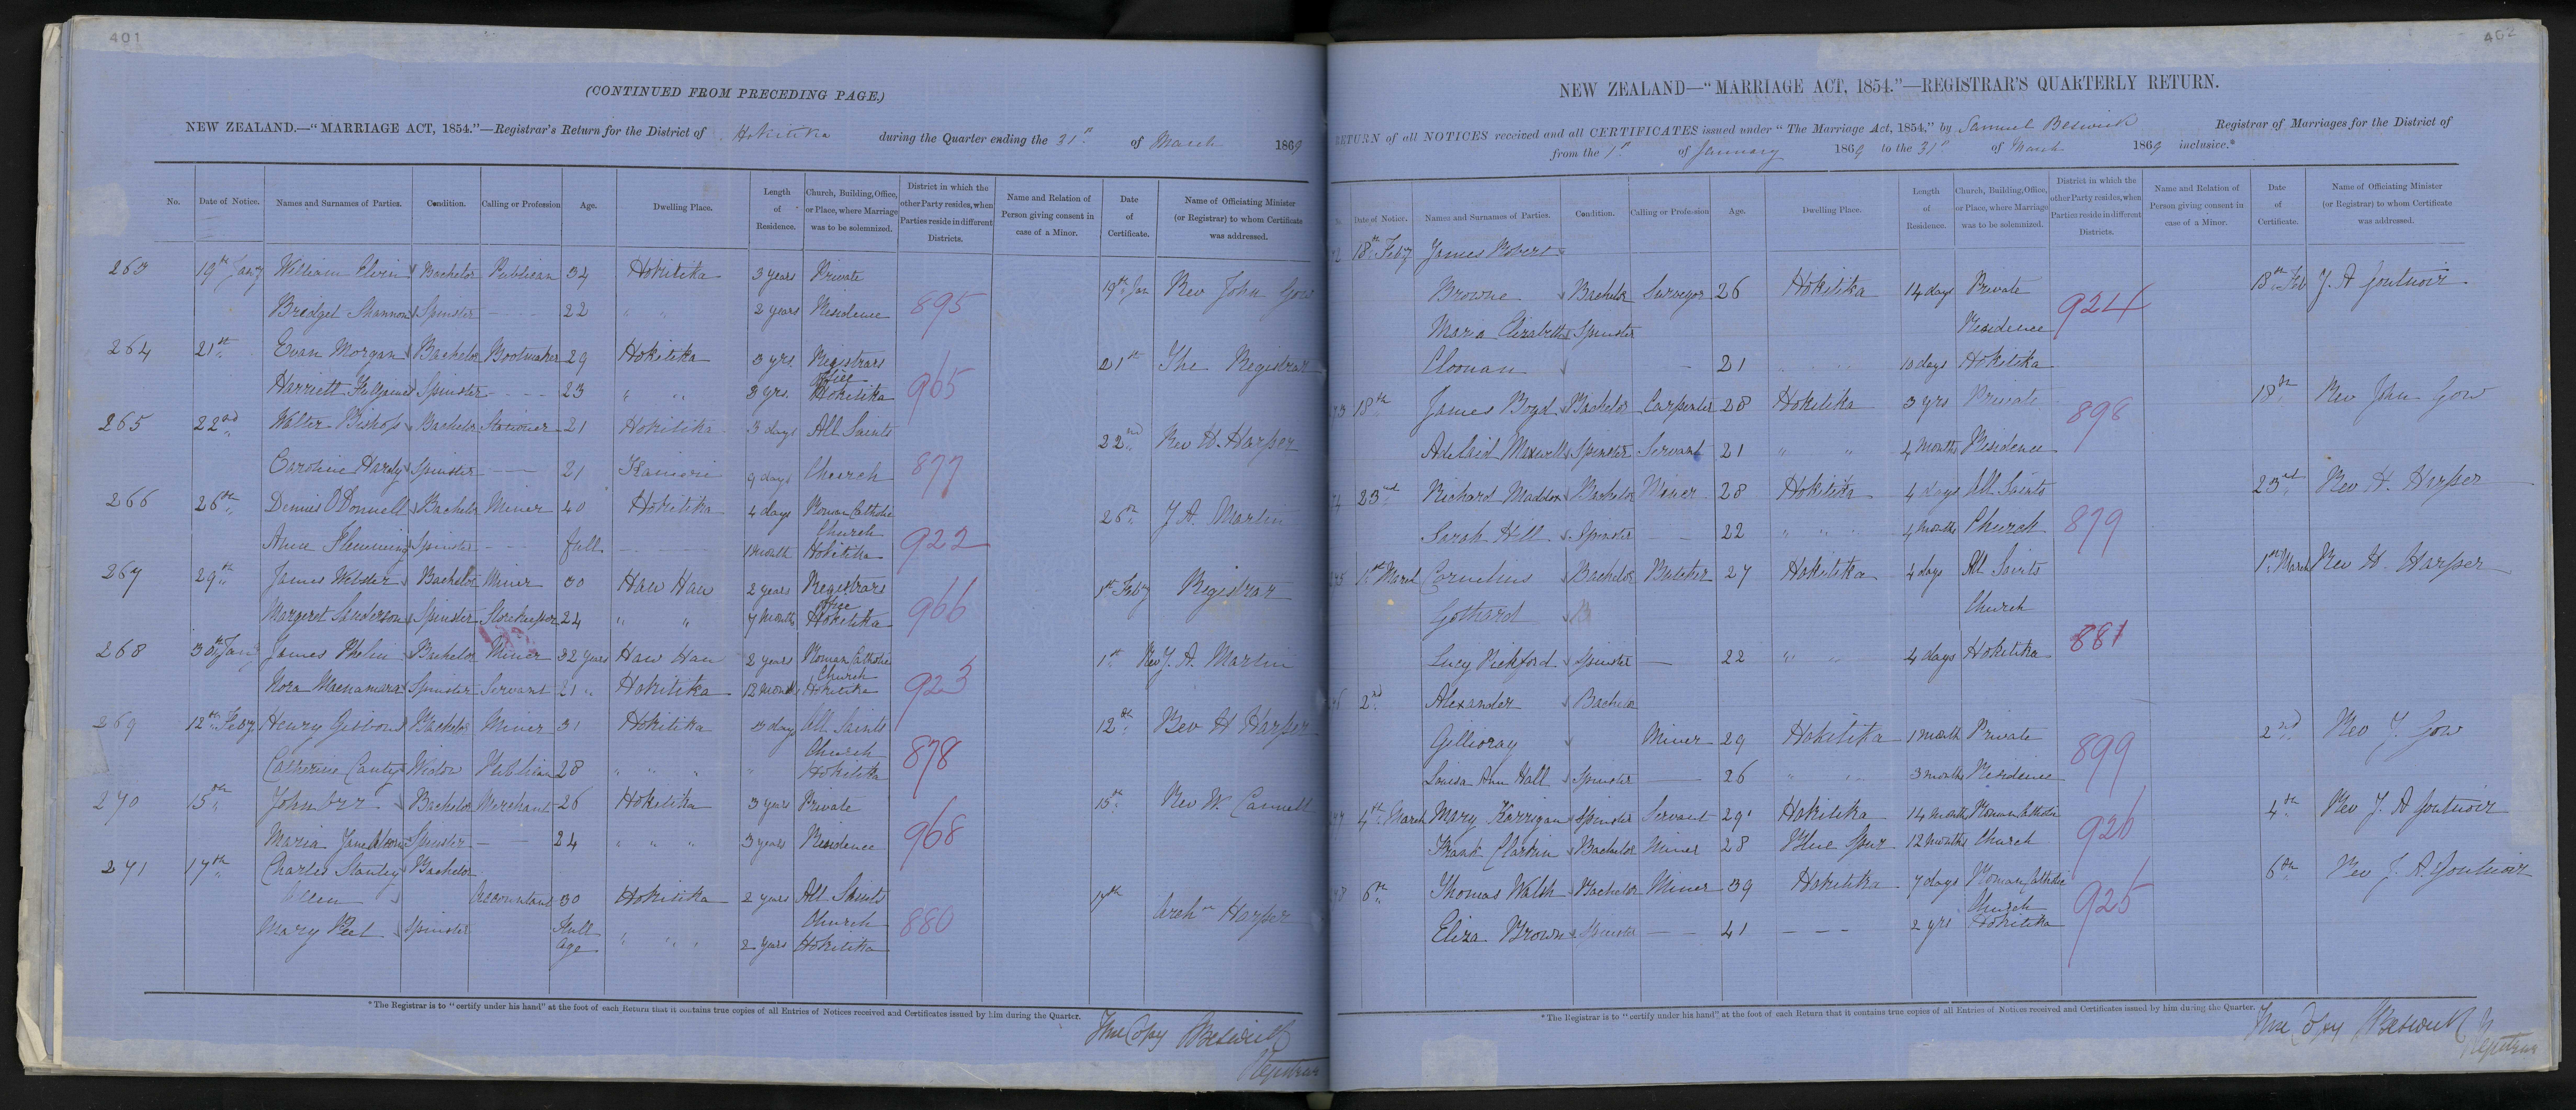 401
(CONTINUED FROM PRECEDING PAGE.)
NEW ZEALAND.—"MARRIAGE ACT, 1854."—Registrar's Return for the District of Hokitika during the Quarter ending the 31st of March 1869
No. Date of Notice. Names and Surnames of Parties. Condition. Calling or Profession Age. Dwelling Place. Length of Residence. Church, Building, Office, or Place, where Marriage was to be solemnized. District in which the other Party resides, when Parties reside in different Districts. Name and Relation of Person giving consent in case of a Minor. Date of Certificate. Name of Officiating Minister (or Registrar) to whom Certificate was addressed.
263 19th Jany William Elvin Bachelor Publican 34 Hokitika 3 years Private 19th Jan Rev John Gow
Bridget Shannon Spinster 22 " " 2 years Residence 895
264 21st Evan Morgan Bachelor Bootmaker 29 Hokitika 3 yrs. Registrars 21st The Registrar
office
Harriett Spinster 23 " " 3 yrs. Hokitika 965
265 22nd Walter Bishop Bachelor Stationer 21 Hokitika 3 days All Saints 22nd Rev H. Harper
Caroline Hardy Spinster 21 Kanieri 9 days Church 877
266 26th Dennis O'Donnell Bachelor Miner 40 Hokitika 4 days Roman Catholic 26th J A. Martin
Church
Anne Flemming Spinster full 1 month Hokitika 922
267 29th James Webster Bachelor Miner 30 Hau Hau 2 years Registrars 1st Feby Registrar
office
Margaret Sanderson Spinster Storekeeper 24 " " 7 months Hokitika 966
268 30th Jany James Phelin Bachelor Miner 32 years Hau Hau 2 years Roman Catholic 1st Rev J. A. Martin
Church
Nora Macnamara Spinster Servant 21 " Hokitika 12 months Hokitika 923
269 12th Feby Henry Gibbons Bachelor Miner 31 Hokitika 3 days All Saints 12th Rev H Harper
Church
Catherine Canty Widow Publican 28 " " " " Hokitika 878
270 15th John Orr Bachelor Merchant 26 Hokitika 3 years Private 15th Rev W Cannell
Maria Jane Spinster 24 " " " 3 years Residence 968
271 17th Charles Stanley Bachelor
Allen Accountant 30 Hokitika 2 years All Saints 17th Archn Harper
Church 880
Mary Peet Spinster Full age " " " 2 years Hokitika
*The Registrar is to "certify under his hand" at the foot of each Return that it contains true copies of all Entries of Notices received and Certificates issued by him during the Quarter.
True Copy SBeswick
Registrar
402
NEW ZEALAND—"MARRIAGE ACT, 1854."—REGISTRAR'S QUARTERLY RETURN.
RETURN of all NOTICES received and all CERTIFICATES issued under "The Marriage Act, 1854," by Samuel Beswick Registrar of Marriages for the District of
from the 1st of January 1869 to the 31st of March 1869 inclusive.*
Date of Notice. Names and Surnames of Parties. Condition. Calling or Profession Age. Dwelling Place. Length of Residence. Church, Building, Office, or Place, where Marriage was to be solemnized. District in which the other Party resides, when Parties reside in different Districts. Name and Relation of Person giving consent in case of a Minor. Date of Certificate. Name of Officiating Minister (or Registrar) to whom Certificate was addressed.
18th Feby James Robert
Browne Bachelor Surveyor 26 Hokitika 14 days Private 18th Feb J. A
Maria Elizabeth Spinster Residence 924
Cloonan 21 10 days Hokitika
18th James Boyd Bachelor Carpenter 28 Hokitika 3 yrs Private 18th Rev John Gow
Adelaid Maxwell Spinster Servant 21 " " 4 months Residence 898
23rd Richard Maddon Bachelor Miner 28 Hokitika 4 days All Saints 23rd Rev H. Harper
Sarah Hill Spinster 22 " " 4 months Church 879
1st March Cornelius Bachelor Butcher 27 Hokitika 4 days All Saints 1st March Rev H. Harper
Gothard Church
Lucy Pickford Spinster 22 " " 4 days Hokitika 881
2nd Alexander Bachelor
Gillivray Miner 29 Hokitika 1 month Private 2nd Rev J. Gow
Louisa Ann Hall Spinster 26 " " 3 months Residence 899
4th March Mary Korrigan Spinster Servant 29 Hokitika 14 months Roman Catholic 4th Rev J. A
Frank Clarkin Bachelor Miner 28 Blue Spur 12 months Church 926
6th Thomas Walsh Bachelor Miner 39 Hokitika 7 days Roman Catholic 6th Rev J. A.
Church
Eliza Brown Spinster 41 2 yrs Hokitika 925
*The Registrar is to "certify under his hand" at the foot of each Return that it contains true copies of all Entries of Notices received and Certificates issued by him during the Quarter.
True Copy SBeswick
Registrar